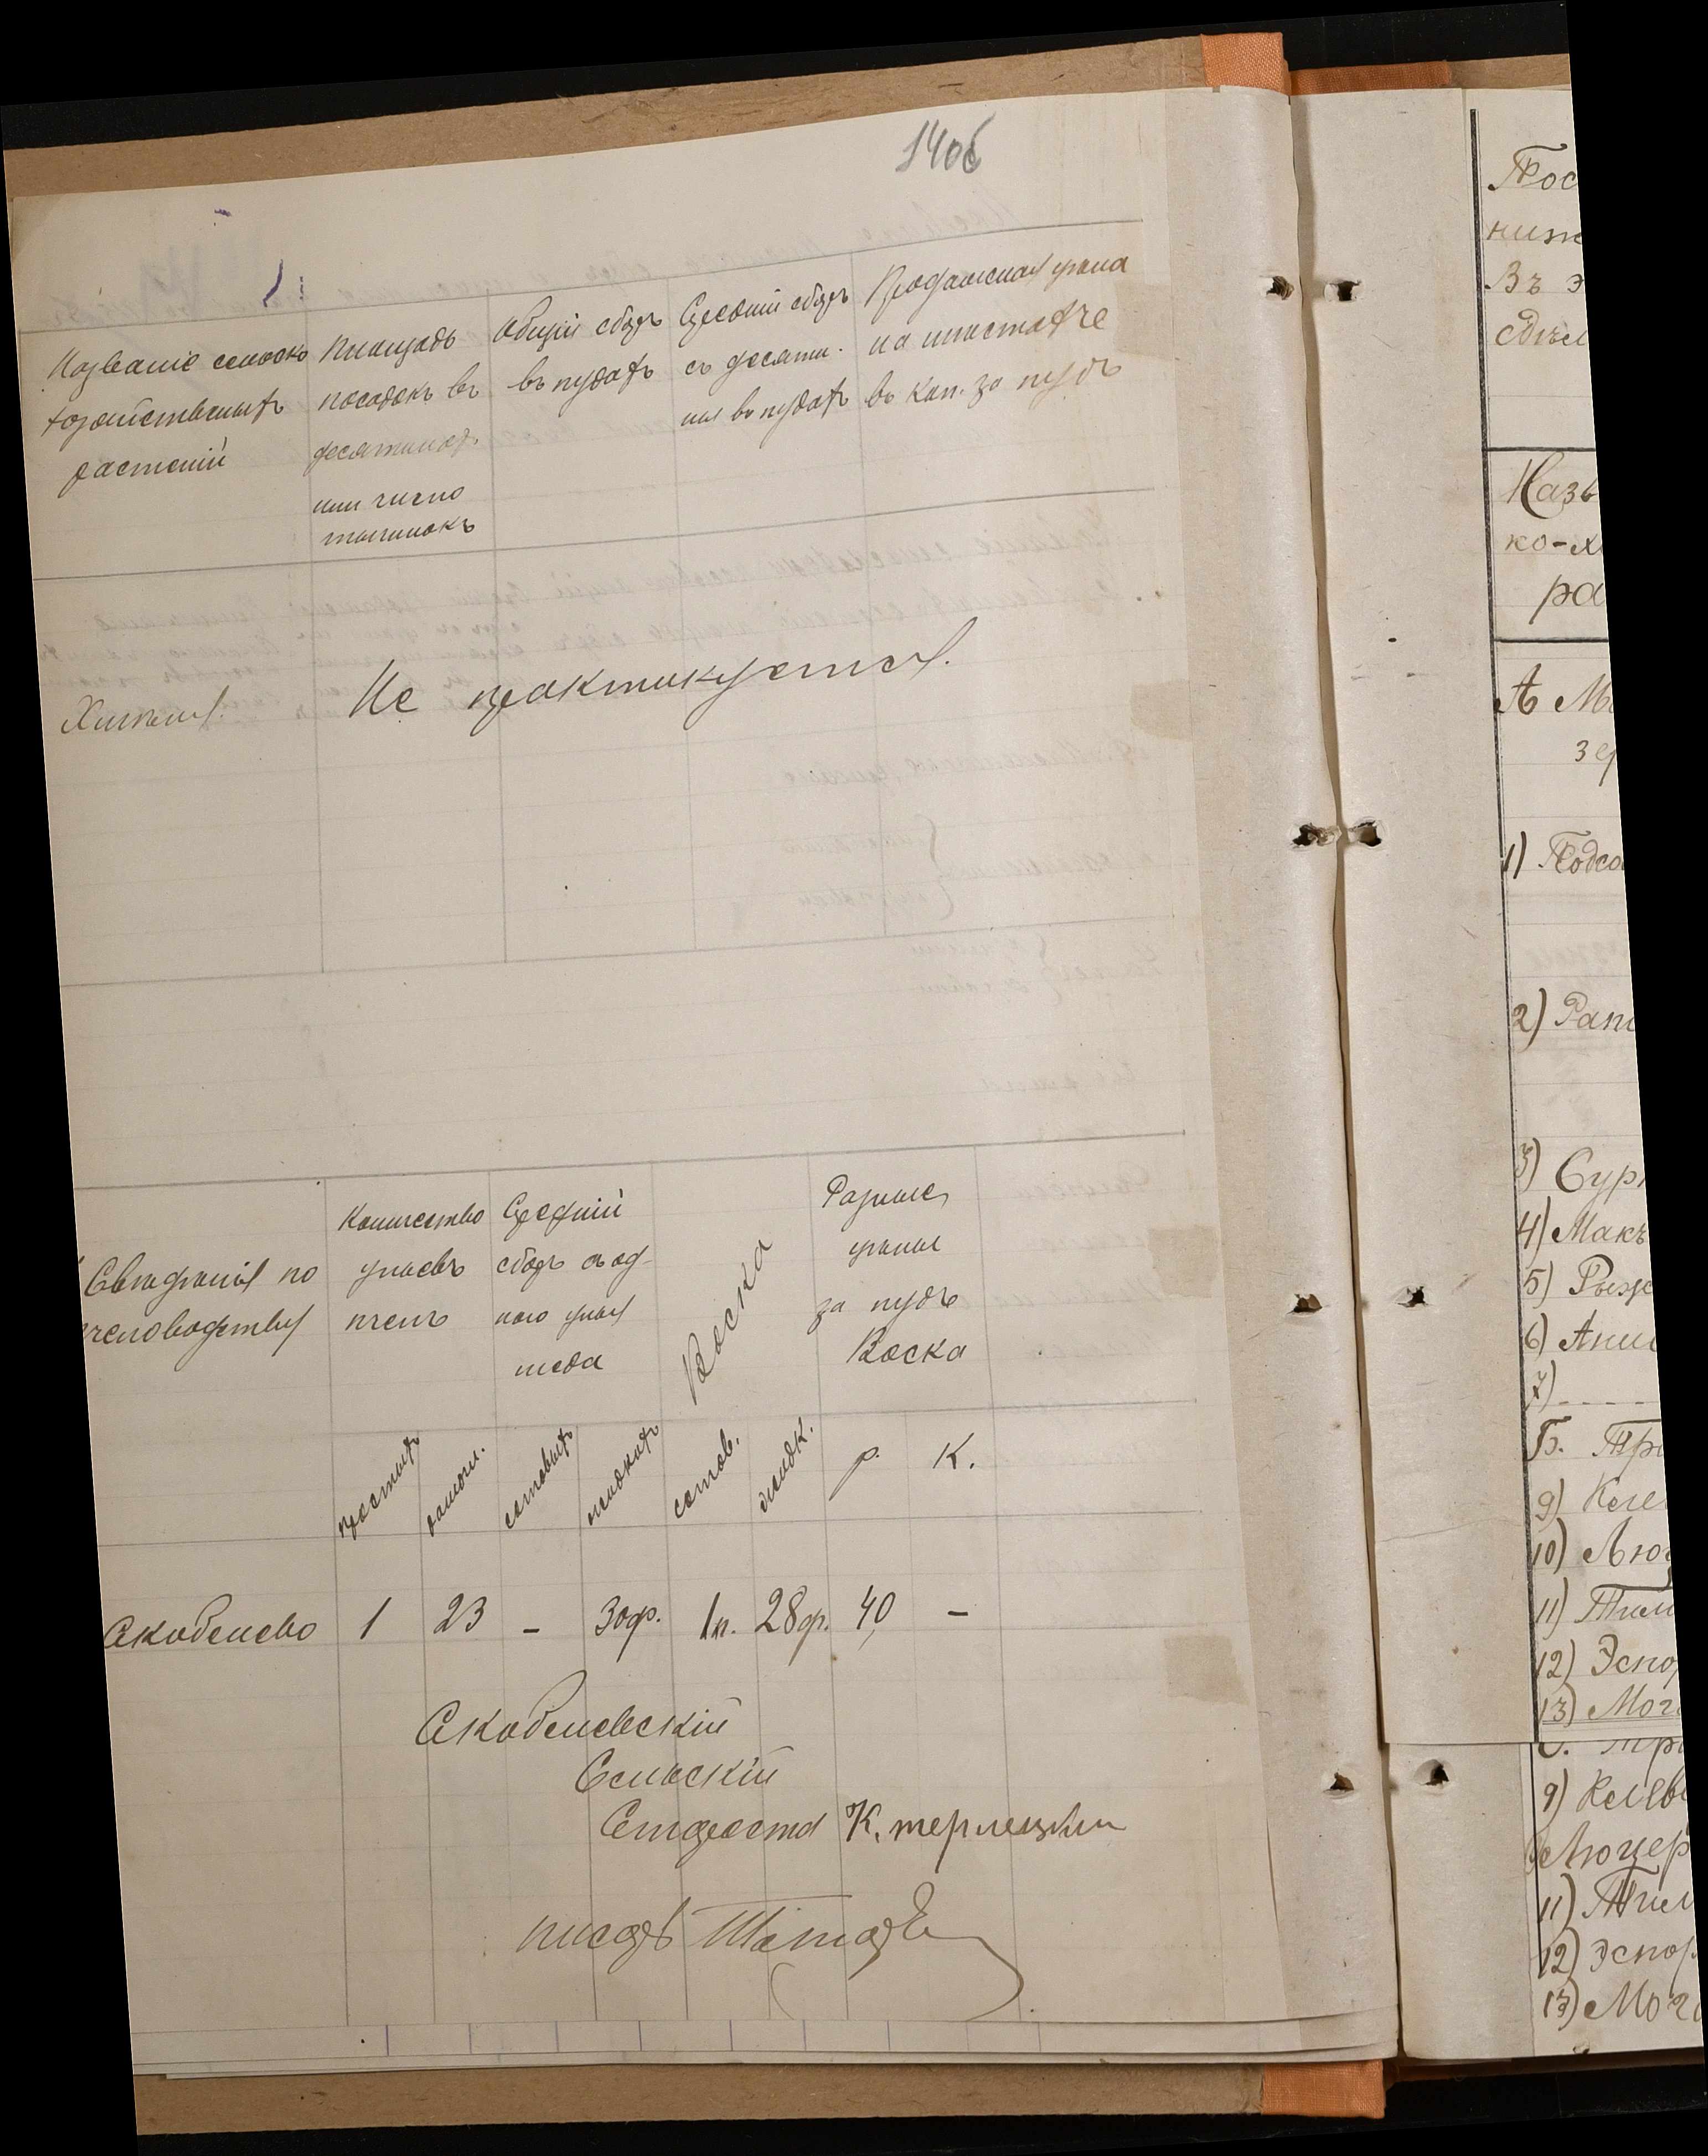 14об
Названіе сельско
хозяйственныхъ
растеній
Площадь
посадокъ въ
десятинахъ
или число
тычинокъ
Общій сборъ
въ пудахъ
Средній сборъ
съ десяти-
ны въ пудахъ
Продажная цѣна
на мѣстахъ
въ коп. за пудъ
Хмѣля.
Не практикуется.
Свѣдѣнія по
пчеловодству
Количество
ульевъ
пчелъ
Средній
сборъ съ од-
ного улья
меда
Воска
Разные
цѣны
за пудъ
Воска
простыхъ
рамочн.
сотовыхъ
жидкихъ
сотов.
жидк.
р.
к.
Скабелево 1 23 - 30ф. 1п. 28ф. 40 -
Скабелевскій
Сельскій
Староста К. терлецкий
писарь
Пос
ниж
Въ э
сдѣл
Назв
ко-х
ра
А Ма
зе
1) Подсо
2) Рап
3) Сур
4) Макъ
5) Рыж
6) Анис
7) - - - -
Б. Тр
9)
10) Люц
11) Тим
12) Эспа
13) Мог
9) Клев
Люцер
11) Тим
12) Эспар
13) Мог